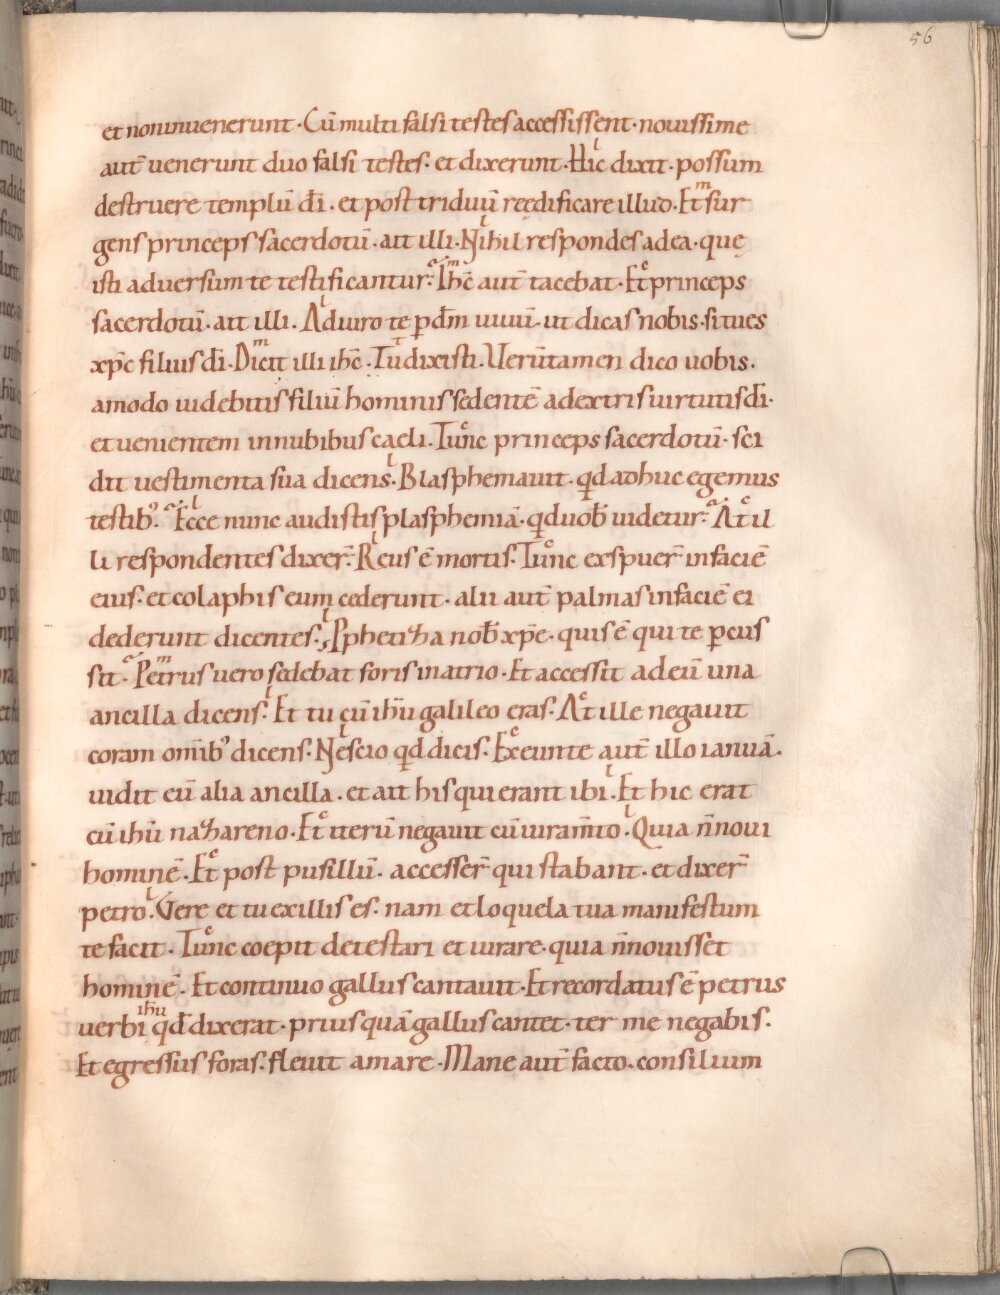 56
et non inuenerunt· Cū multi falsi testes accessissent· nouissime
aut̄ uenerunt duo falsi testes· et dixerunt· Hic dixit· possum
destruere templū dī· et post triduū reędificare illud· Et sur
gens princeps sacerdotū· ait illi· Nihil respondes ad ea· quę
isti aduersum te testificantur· Ih̄c aut̄ tacebat· Et princeps
sacerdotū· ait illi· Adiuro te p̄ dm̄ uiuū· ut dicas nobis· si tu es
xp̄c filius dī· Dicit illi ih̄c· Tu dixisti· Verūtamen dico uobis·
amodo uidebitis filiū hominis sedentē a dextris uirtutis dī·
et uenientem in nubibus caeli· Tunc princeps sacerdotū· sci
dit uestimenta sua dicens· Blasphemauit· qd adhuc egemus
testib᾽· Ecce nunc audistis plasphemiā· qd uob̄ uidetur· At il
li respondentes dixer̄· Reus ē mortis· Tunc exspuer̄ in faciē
eius· et colaphis eum cederunt· alii aut̄ palmas in faciē ei
dederunt dicentes· Pphetiza nob̄ xp̄e· quis ē qui te pcus
sit· Petrus uero sedebat foris in atrio· Et accessit ad eū una
ancilla dicens· Et tu cū ih̄u galileo eras· At ille negauit
coram omīb᾽ dicens· Nescio qd dicis· Exeunte aut̄ illo ianuā·
uidit eū alia ancilla· et ait his qui erant ibi· Et hic erat
cū ih̄u nazareno· Et iterū negauit cū iuram̄to· Quia n̄ noui
hominē· Et post pusillū· accesser̄ qui stabant· et dixer̄
petro· Vere et tu ex illis es· nam et loquela tua manifestum
te facit· Tunc coepit detestari et iurare· quia n̄ nouisset
hominē· Et continuo gallus cantauit· Et recordatus ē petrus
uerbi ih̄u qd̄ dixerat· prius quā gallus cantet· ter me negabis·
Et egressus foras· fleuit amare· Mane aut̄ facto· consilium